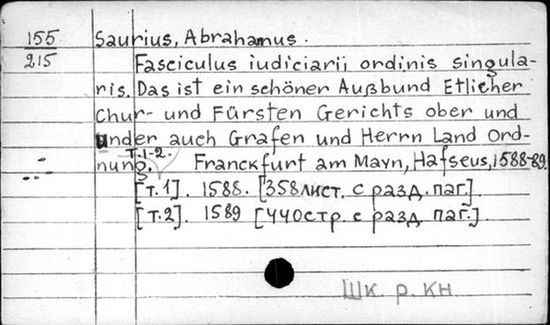 155
215
Saurius, Abrahamus.
Fasciculus iudiciarii ordinis singula-
ris. Das ist ein schöner Außbund Etlicher
Chur- und Fürsten Gerichts ober und
under auch Grafen und Herrn Land Ord-
nung. т.1-2. Franckfurt am Mayn, Hafseus, 1588-89.
[т.1]. 1588. [358лист. с разд. паг.]
[т.2]. 1589 [440стр. с разд. паг.]
Шк. р. кн.